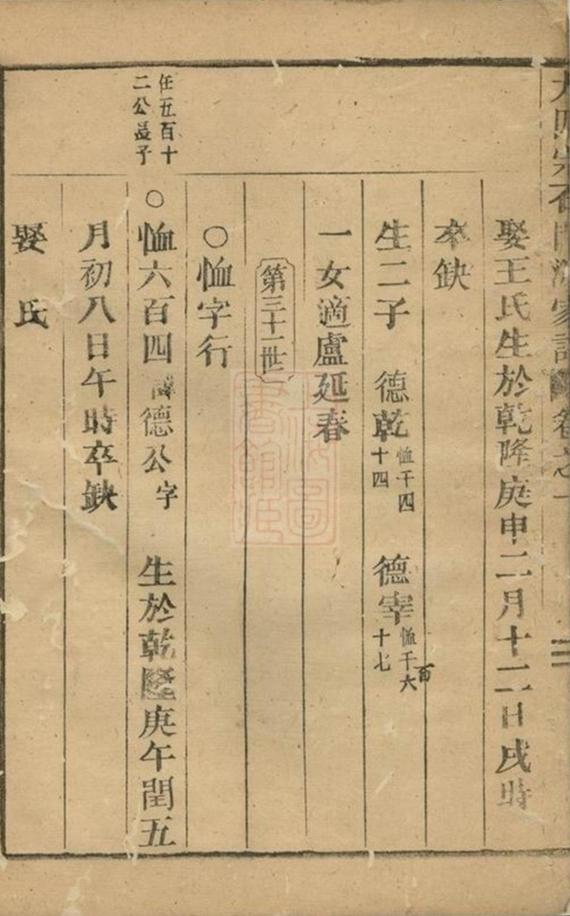 家譜 卷之一
娶王氏生於乾隆庚申二月十二日戌時
卒缺
生二子 德乾恤千四十四 德宰恤千六百十七
一女適盧延春
第三十一世
〇恤字行
任五百十二公孟子
〇恤六百四 德公字 生於乾隆庚午閏五
月初八日午時卒缺
娶 氏